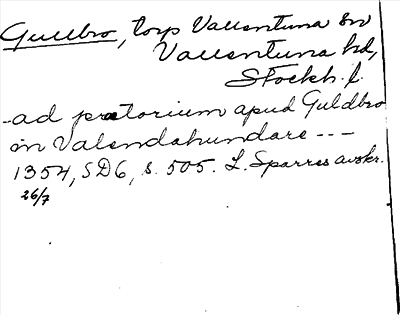 Gullbro, torp Vallentuna sn
Vallentuna hd,
Stockh. l.
-ad pretorium apud Guldbro
in Valendahundare ---
1354, SD6, s. 505. L. Sparres avskr.
26/7